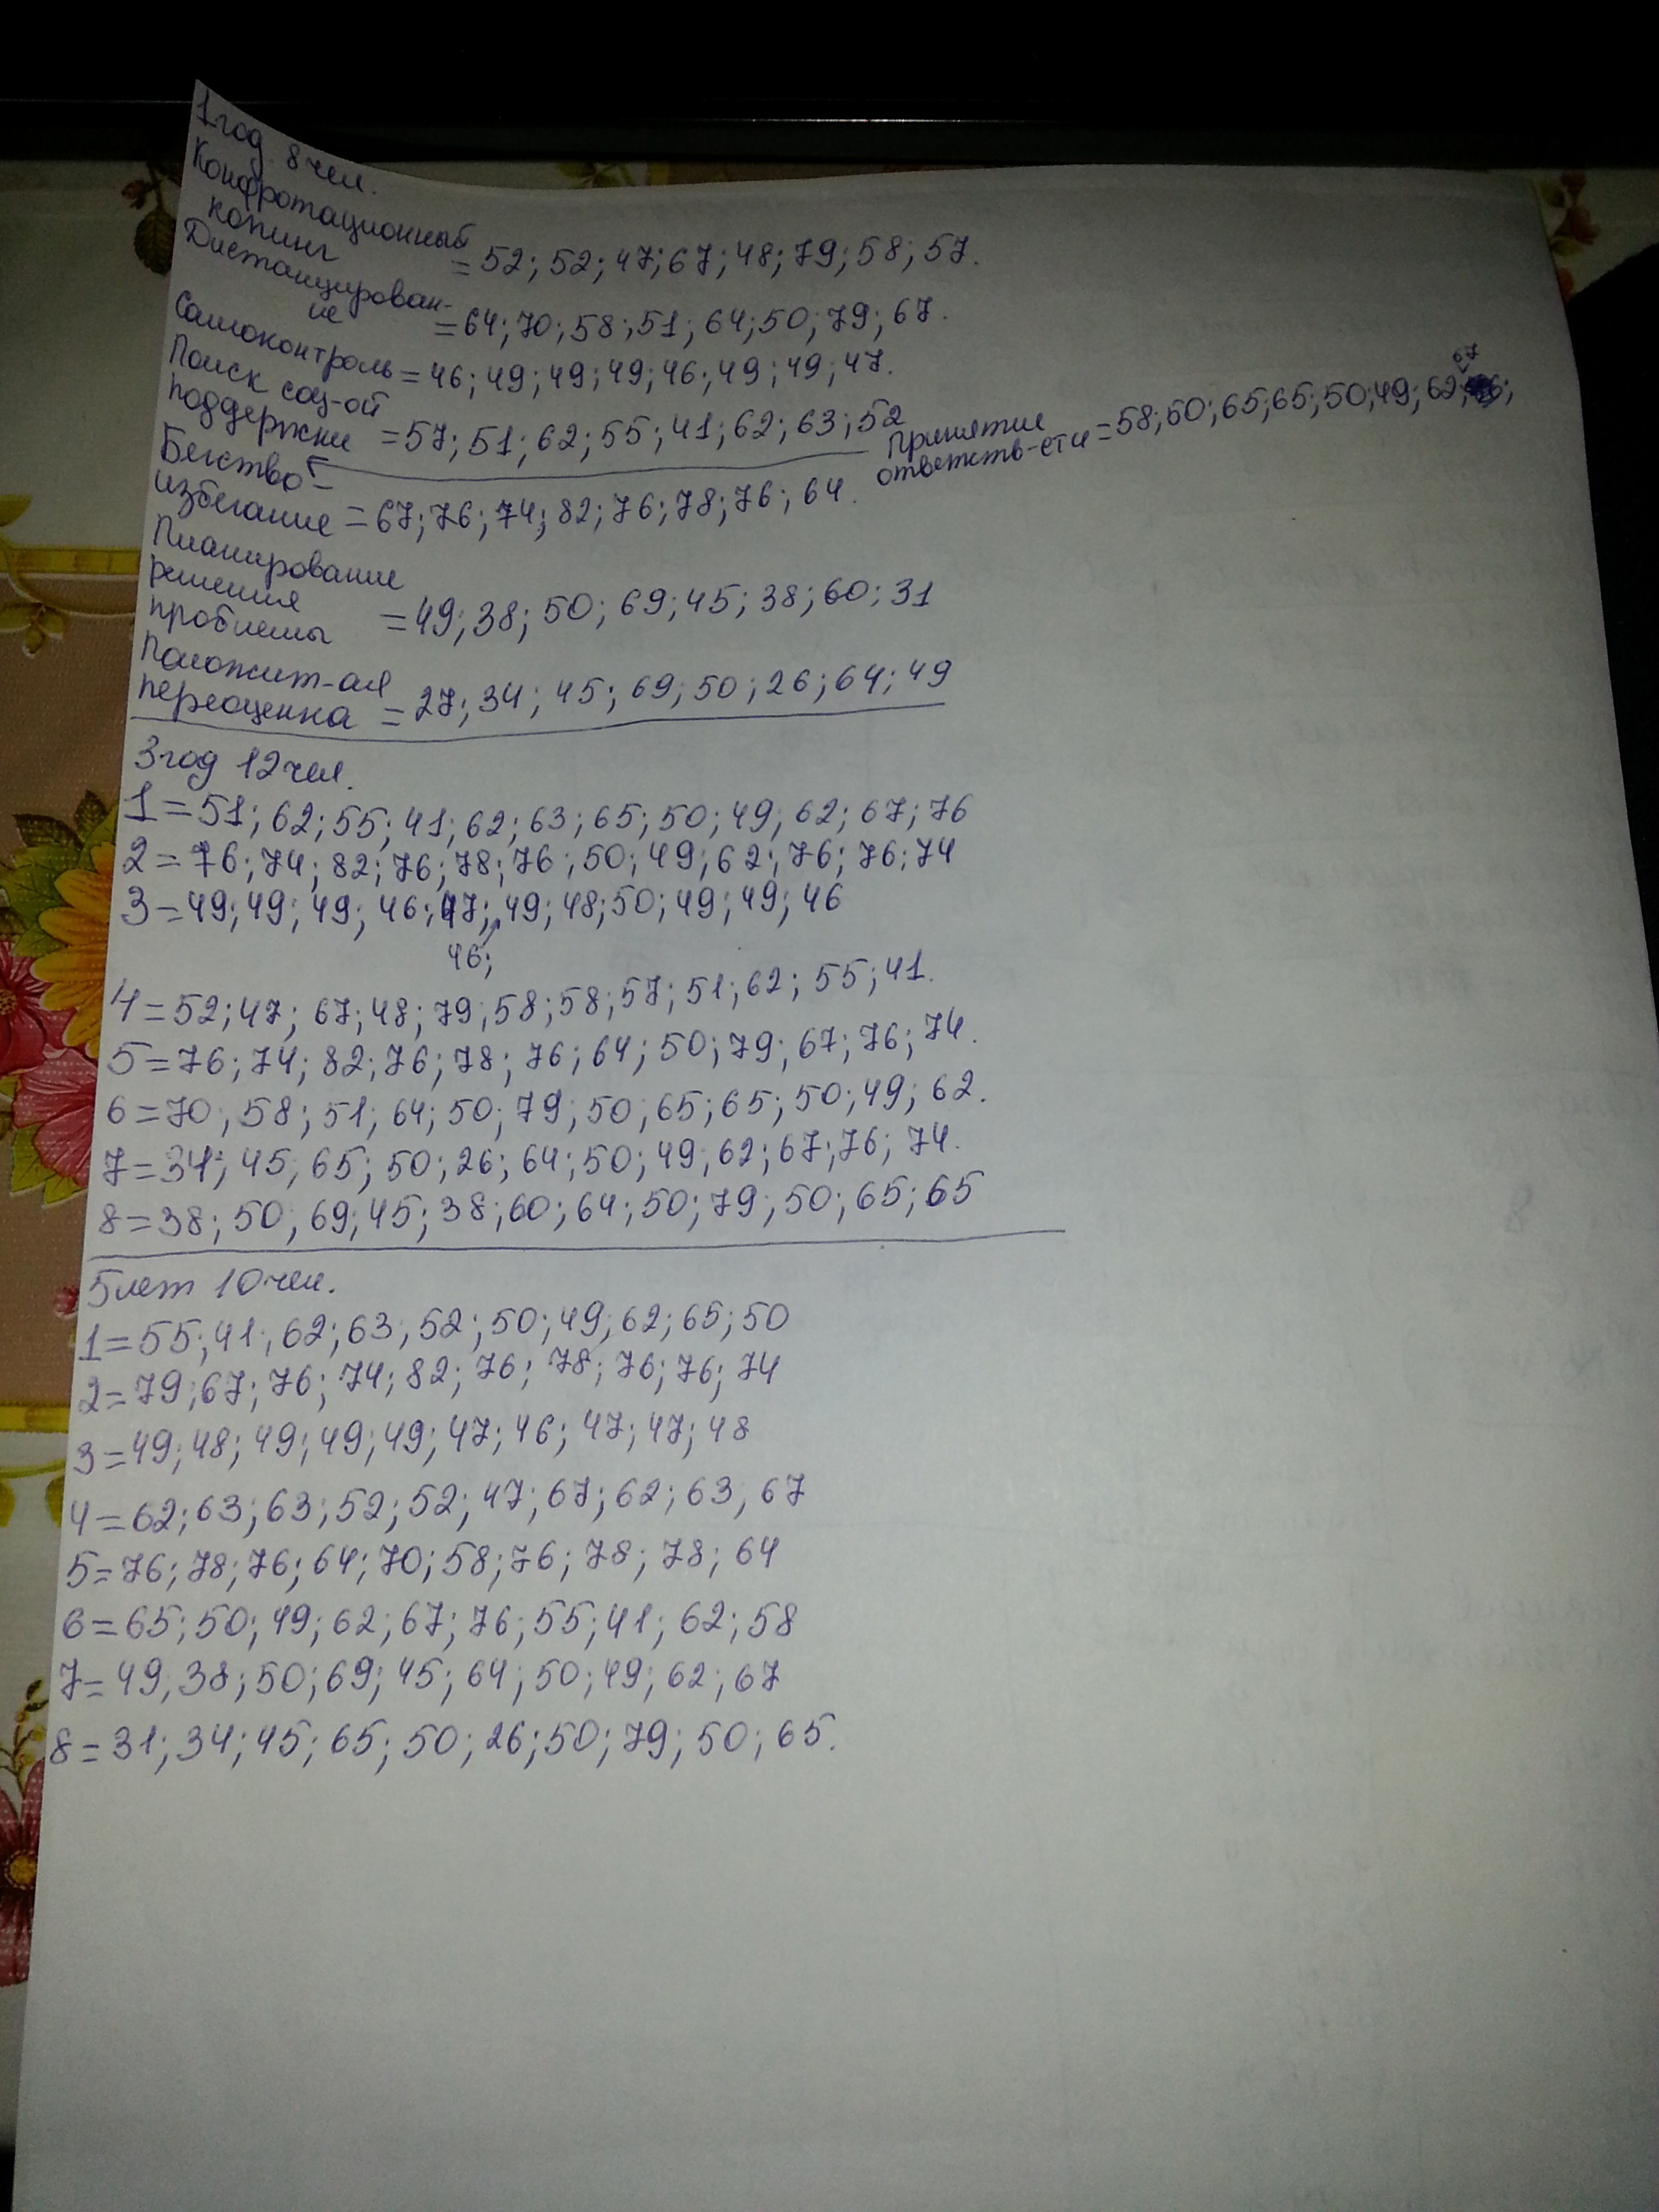 1 год 8 чел.
Конфротационный
копинг = 52; 52; 47; 67; 48; 79; 58; 57.
Дистанцирован-
ие = 64; 70; 58; 51; 64; 50; 79; 67.
Самоконтроль = 46; 49; 49; 49; 46; 49; 49; 47.
Поиск соц-ой
поддержки = 57; 51; 62; 55; 41; 62; 63; 52
Принятие
ответств-сти = 58; 50; 65; 65; 50; 49; 62; 67
Бегство-
избегание = 67; 76; 74; 82; 76; 78; 76; 64.
Планирование
решения
проблемы = 49; 38; 50; 69; 45; 38; 60; 31
Положит-ая
переоценка = 27; 34; 45; 69; 50; 26; 64; 49
3 год 12 чел.
1 = 51; 62; 55; 41; 62; 63; 65; 50; 49; 62; 67; 76
2 = 76; 74; 82; 76; 78; 76; 50; 49; 62; 76; 76; 74
3 = 49; 49; 49; 46; 47; 49; 48; 50; 49; 49; 46
46;
4 = 52; 47; 67; 48; 79; 58; 58; 57; 51; 62; 55; 41.
5 = 76; 74; 82; 76; 78; 76; 64; 50; 79; 67; 76; 74.
6 = 70; 58; 51; 64; 50; 79; 50; 65; 65; 50; 49; 62.
7 = 34; 45; 65; 50; 26; 64; 50; 49; 62; 67; 76; 74.
8 = 38; 50; 69; 45; 38; 60; 64; 50; 79; 50; 65; 65
5 лет 10 чел.
1 = 55; 41; 62; 63; 52; 50; 49; 62; 65; 50
2 = 79; 67; 76; 74; 82; 76; 78; 76; 76; 74
3 = 49; 48; 49; 49; 49; 47; 46; 47; 47; 48
4 = 62; 63; 63; 52; 52; 47; 67; 62; 63; 67
5 = 76; 78; 76; 64; 70; 58; 76; 78; 78; 64
6 = 65; 50; 49; 62; 67; 76; 55; 41; 62; 58
7 = 49; 38; 50; 69; 45; 64; 50; 49; 62; 67
8 = 31; 34; 45; 65; 50; 26; 50; 79; 50; 65.